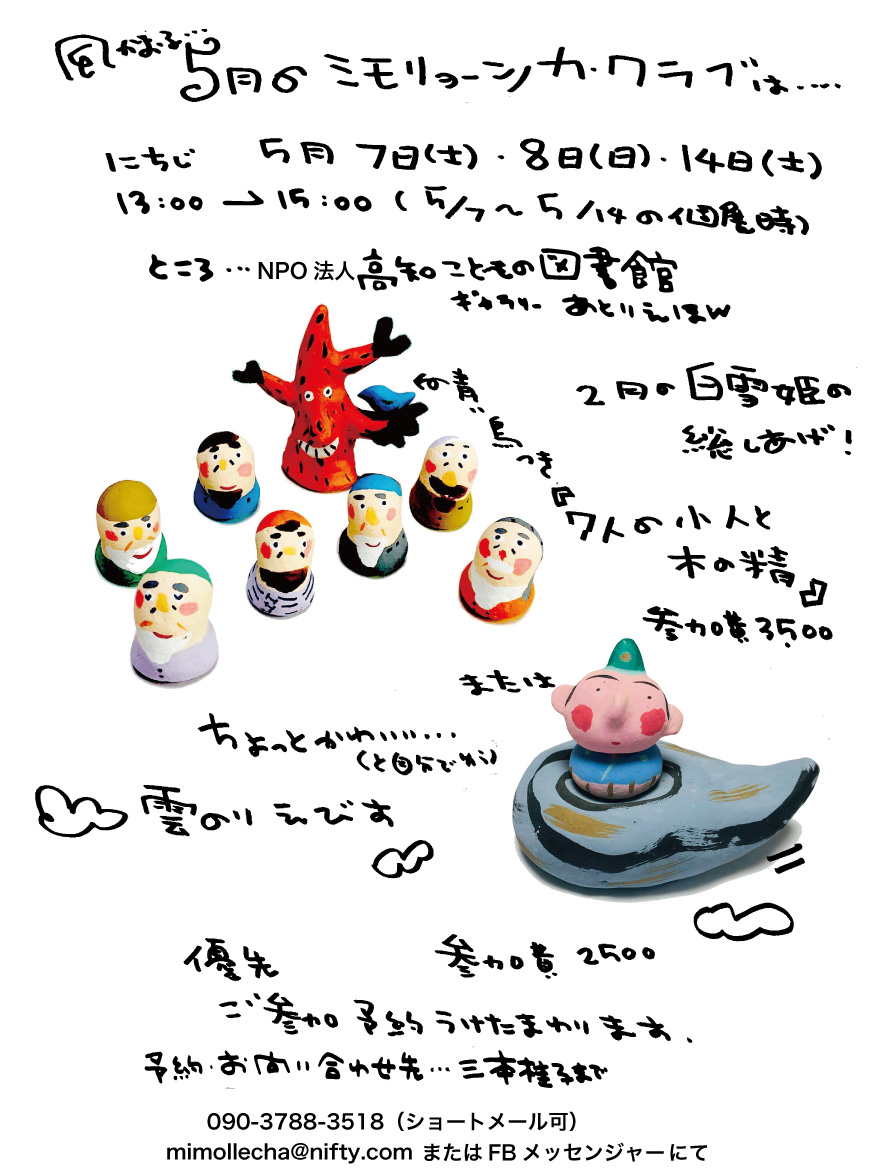 風かおる…
5月の ミモリョーシカ・クラブは……
にちじ 5月 7日(土)・8日(日)・14日(土)
13:00→15:00 (5/7〜5/14の個展時)
ところ…NPO法人高知こどもの図書館
ギャラリー あとりえほn
2月の白雪姫の
総しあげ!
←の青い鳥つき
『7人の小人と
木の精』
参加費3500
または
ちょっとかわいい…
(と自分で如う)
雲のりえびす
優先 参加費 2500
ご参加 予約うけたまわります、
予約・お問い合わせ先…三本桂子まで
090-3788-3518(ショートメール可)
mimollecha@nifty.com またはFBメッセンジャーにて